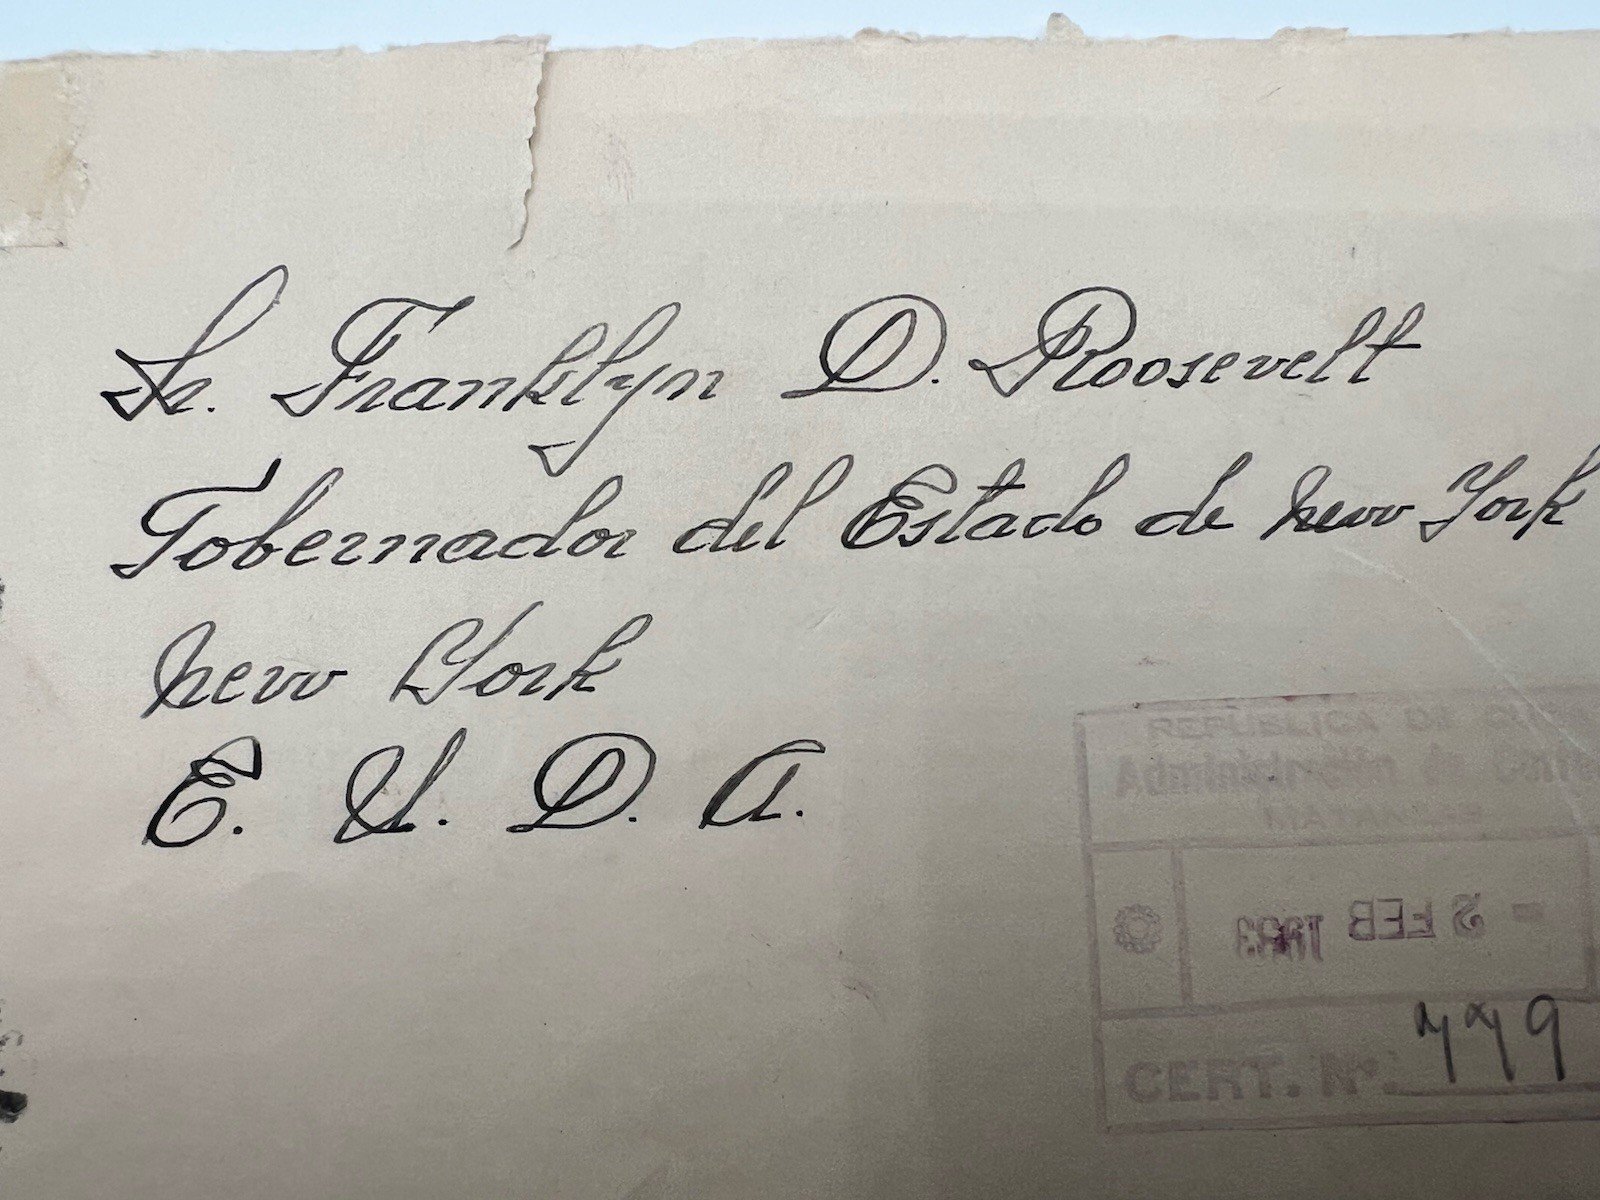 Sr. Franklyn D. Roosevelt
Gobernador del Estado de New York
New York
E. U. D. A.
REPUBLICA DE CUBA
Administración de Correos
2 FEB 1933
CERT. Nº. 779